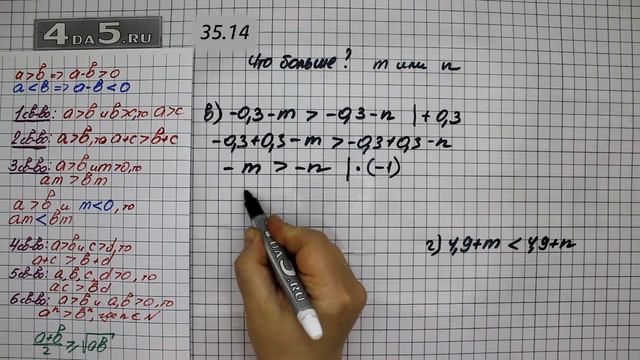 4DA5.RU
35.14
Что больше? m или n
a>b => a-b>0
a<b => a-b<0
1 св-во: a>b и b>x, то a>c
2 св-во: a>b, то a+c>b+c
3 св-во: a>b и m>0, то
am>bm
a>b и m<0, то
am<bm
4 св-во: a>b и c>d, то
a+c>b+d
5 св-во: a,b,c,d>0, то
ac>bd
6 св-во: a>b и a,b>0, то
aⁿ>bⁿ, где n∈N
(a+b)/2 ≥ √ab
в) -0,3-m > -0,3-n |+0,3
-0,3+0,3-m>-0,3+0,3-n
-m > -n |·(-1)
г) 4,9+m < 4,9+n
4DA5.RU